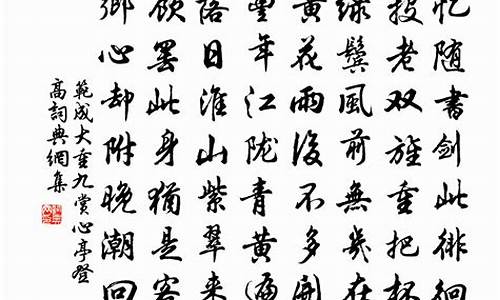 忆随书剑此徘徊
投老双旌重把杯
绿鬓風前無幾在
黄花雨後不多開
豐年江陇青黄遍
落日淮山紫翠来
罷此身猶是客
鄉心却附晚潮回
範成大重九賞心亭登
高詞典網集